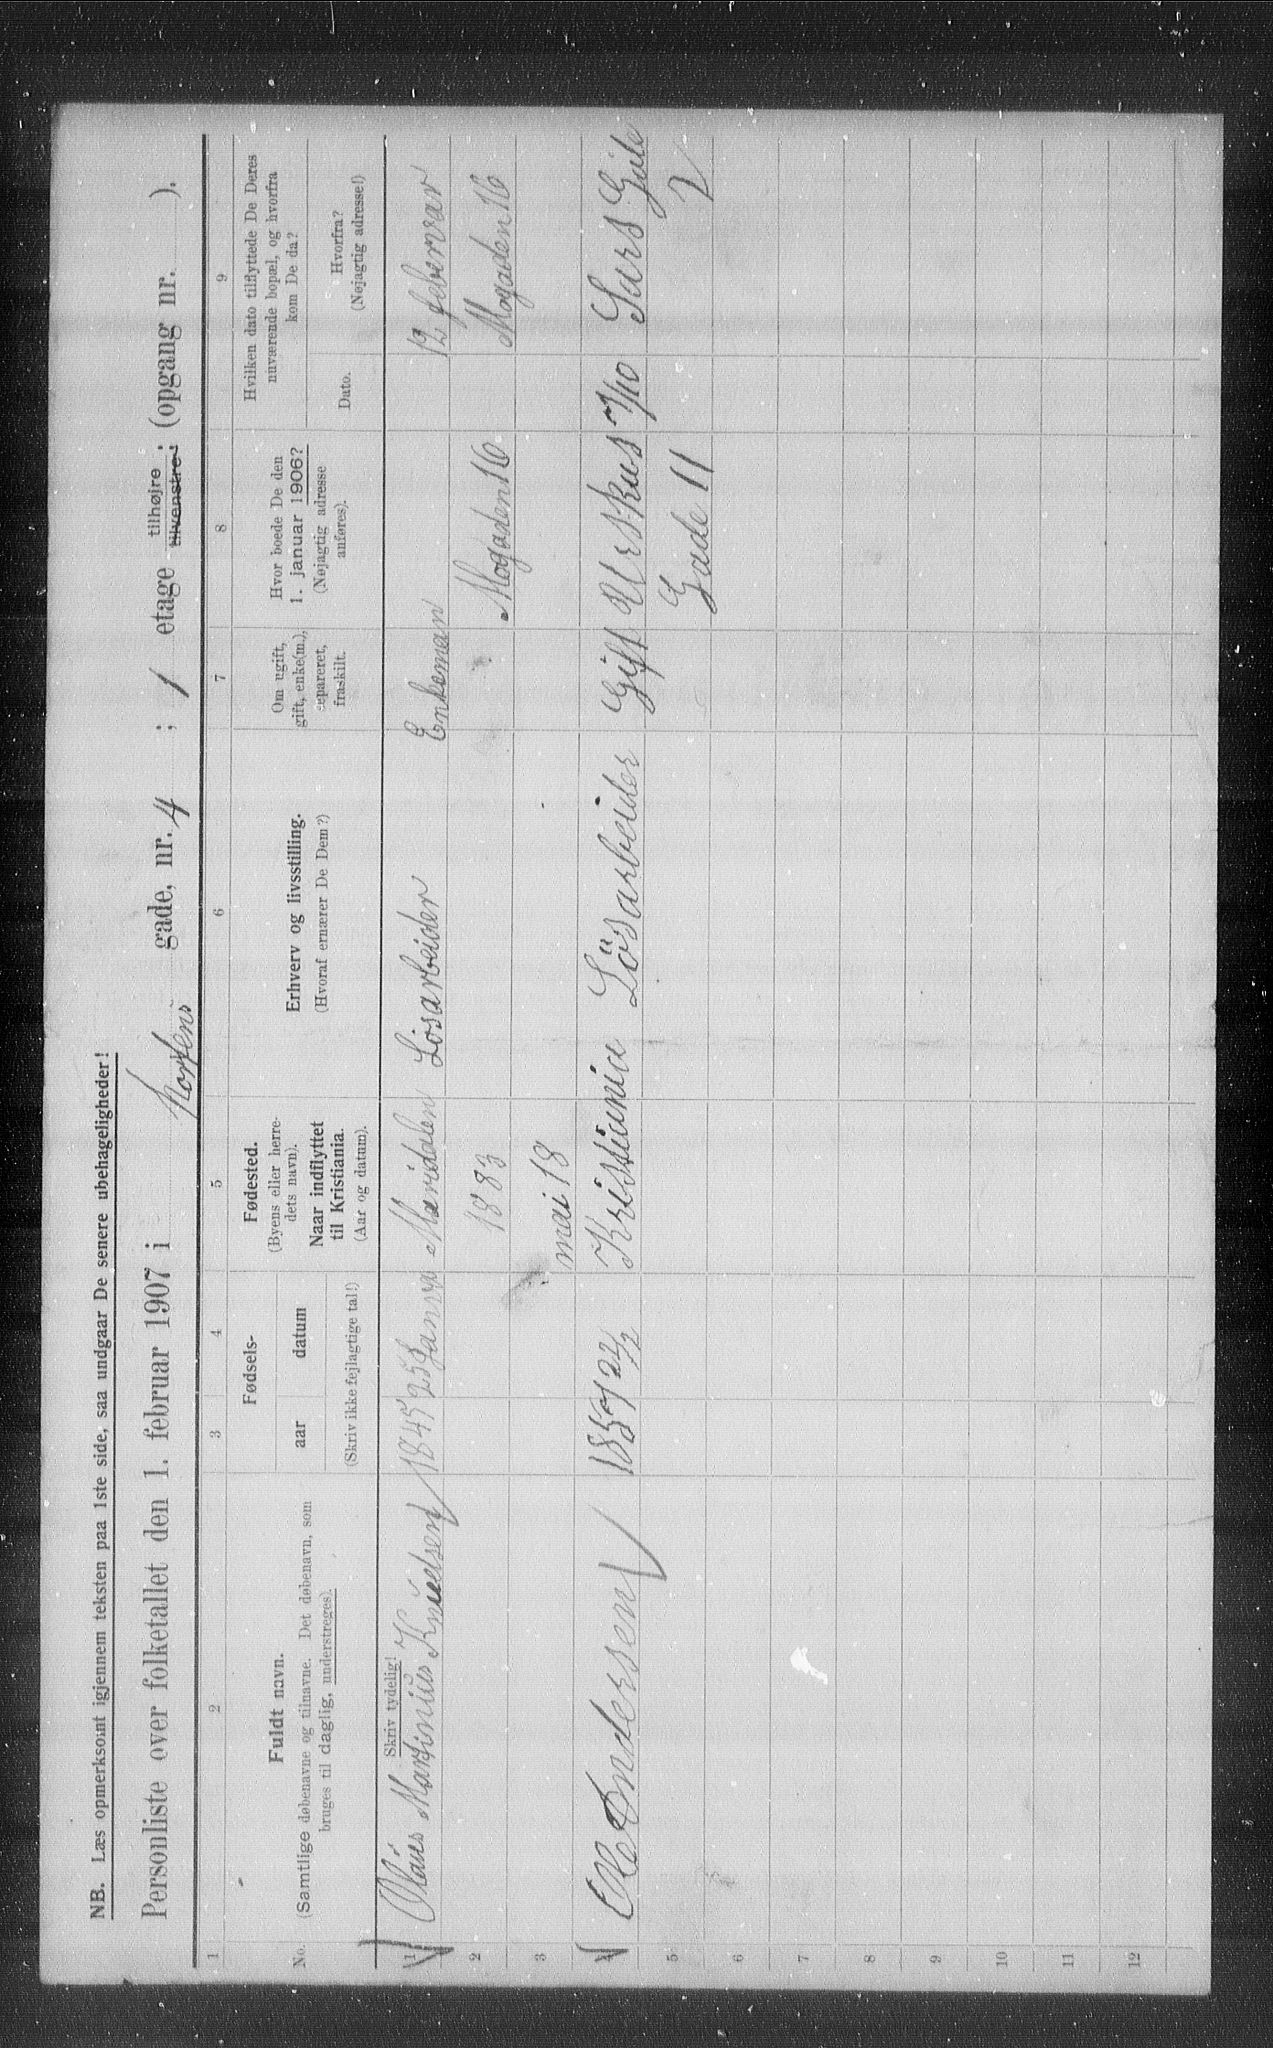 NB. Læs opmerksomt igjennem teksten paa 1ste side, saa undgaar De senere ubehageligheder!
Personliste over folketallet den 1. februar 1907 i Mortens gade, nr. 4 ; 1 etage tilhøjre tilvenstre; (opgang nr. ).
1 2 3 4 5 6 7 8 9
No.
Fuldt navn.
(Samtlige døbenavne og tilnavne. Det døbenavn, som
bruges til daglig, understreges).
Fødsels-
aar datum
(Skriv ikke fejlagtige tal!)
Fødested.
(Byens eller herre-
dets navn).
Naar indflyttet
til Kristiania.
(Aar og datum).
Erhverv og livsstilling.
(Hvoraf ernærer De Dem?)
Om ugift,
gift, enke(m.),
separeret,
fraskilt.
Hvor boede De den
1. januar 1906?
(Nøjagtig adresse
anføres).
Hvilken dato tilflyttede De Deres
nuværende bopæl, og hvorfra
kom De da?
Dato.
Hvorfra?
(Nøjagtig adresse!)
Skriv tydelig!
1 Olaus Martinius Knudsen 1845 25 Maridalen Løsarbeider Enkeman 12 febervar
2 1883 Mogaden 16 Mogaden 16
3 mai 18
4 Ole Andersen 1859 Kristiania Lösarbeider Gift Urskus Lars Gate
5 Gade 11 2
6
7
8
9
10
11
12